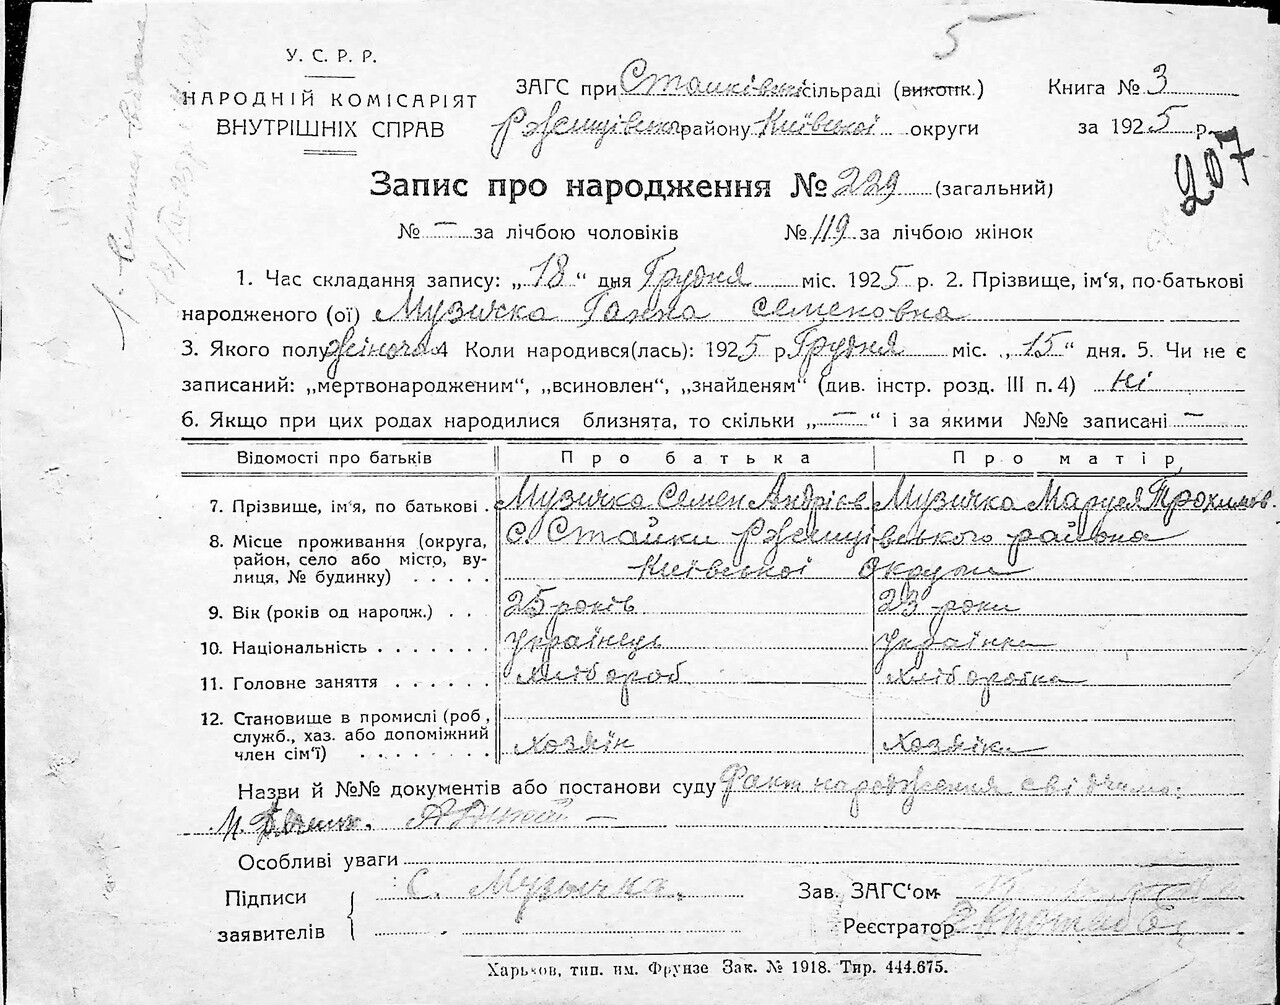 5
У. С. Р. Р.
НАРОДНІЙ КОМІСАРІЯТ
ВНУТРІШНІХ СПРАВ
ЗАГС при Стайківській сільраді (виконк.)
Ржищівського району Київської округи
Книга № 3
за 1925 р.
207
Запис про народження № 229 (загальний)
№ — за лічбою чоловіків № 119 за лічбою жінок
1. Час складання запису: „18“ дня Грудня міс. 1925 р. 2. Прізвище, ім'я, по-батькові
народженого (ої) Музичка Ганна Семеновна
3. Якого полу жіноча 4 Коли народився(лась): 1925 р Грудня міс. „15“ дня. 5. Чи не є
записаний: „мертвонародженим“, „всиновлен“, „знайденям“ (див. інстр. розд. III п. 4) ні
6. Якщо при цих родах народилися близнята, то скільки „—“ і за якими №№ записані —
Відомості про батьків Про батька Про матір
7. Прізвище, ім'я, по батькові . Музичка Семен Андріев Музичка Маруся Трохимов.
8. Місце проживання (округа, район, село або місто, вулиця, № будинку) . . . . . с. Стайки Ржищівського района
Київської Округи
9. Вік (років од народж.) . . 25 років 23 роки
10. Національність . . . . . . . Українець Українка
11. Головне заняття . . . . . . Хлібороб Хліборобка
12. Становище в промислі (роб, служб., хаз. або допоміжний член сім'ї) . . . . . . . . Хозяїн Хозяйка
Назви й №№ документів або постанови суду Факт народження
Особливі уваги
Підписи
заявителів
С. Музычка.
Зав. ЗАГС'ом
Реєстратор
Харьков, тип. им. Фрунзе Зак. № 1918. Тир. 444.675.